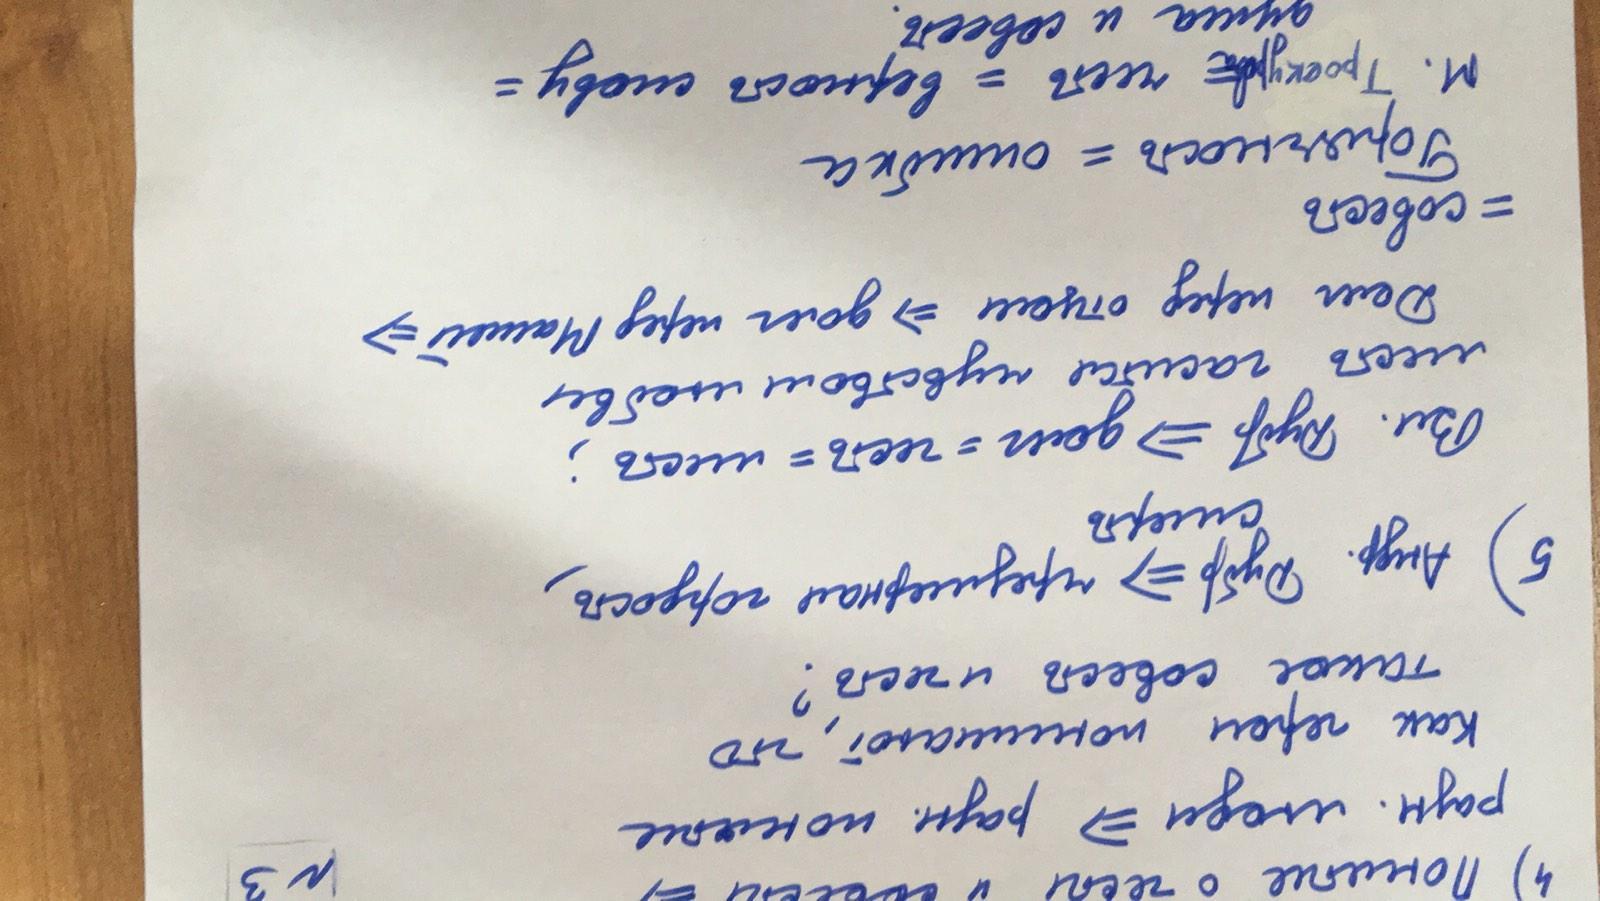 N 3
4) Понятие о чести и совести ⇒
разн. люди ⇒ разн. понятие
Как герои понимают, что
такое совесть и честь?
5) Андр. Дубр ⇒ чрезмерная гордость,
смерть
Вл. Дубр ⇒ долг = честь = месть;
месть гасится чувством любви
Долг перед отцом ⇒ долг перед Машей ⇒
= совесть
Горячность = ошибка
М. Троекур = честь = верность слову =
душа и совесть.